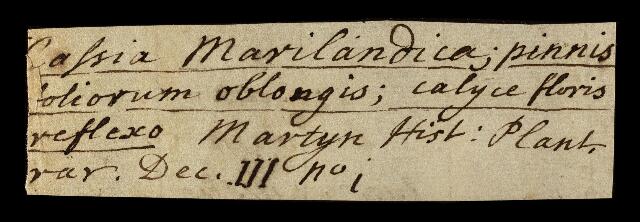 Cassia Marilandica; pinnis
foliorum oblongis; calyce floris
reflexo Martyn Hist: Plant.
rar. Dec. III no i